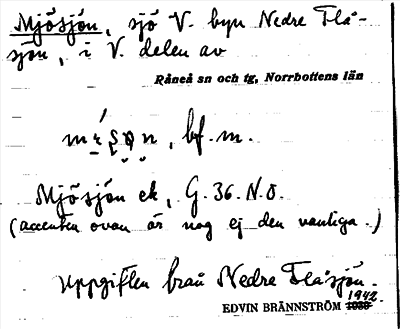 Mjösjön, sjö V. byn Nedre Flå-
sjön, i V. delen av
Råneå sn och tg, Norrbottens län
bf. m.
Mjösjön ek, G. 36. N.O.
(accenten ovan är nog ej den vanliga.)
Uppgiften från Nedre Flåsjön.
1942.
EDVIN BRÄNNSTRÖM 1930